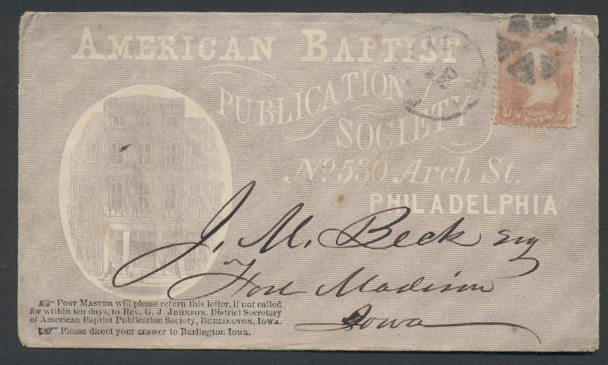 AMERICAN BAPTIST
PUBLICATION
SOCIETY
No. 530 Arch St.
PHILADELPHIA
U S THREE CENTS S
J. M. Beck Esq
Fort Madison
Iowa
☞ POST MASTER will please return this letter, if not called
for within ten days, to Rev. G. J. JOHNSON, District Secretary
of American Baptist Publication Society, BURLINGTON, IOWA.
☞ Please direct your answer to Burlington Iowa.